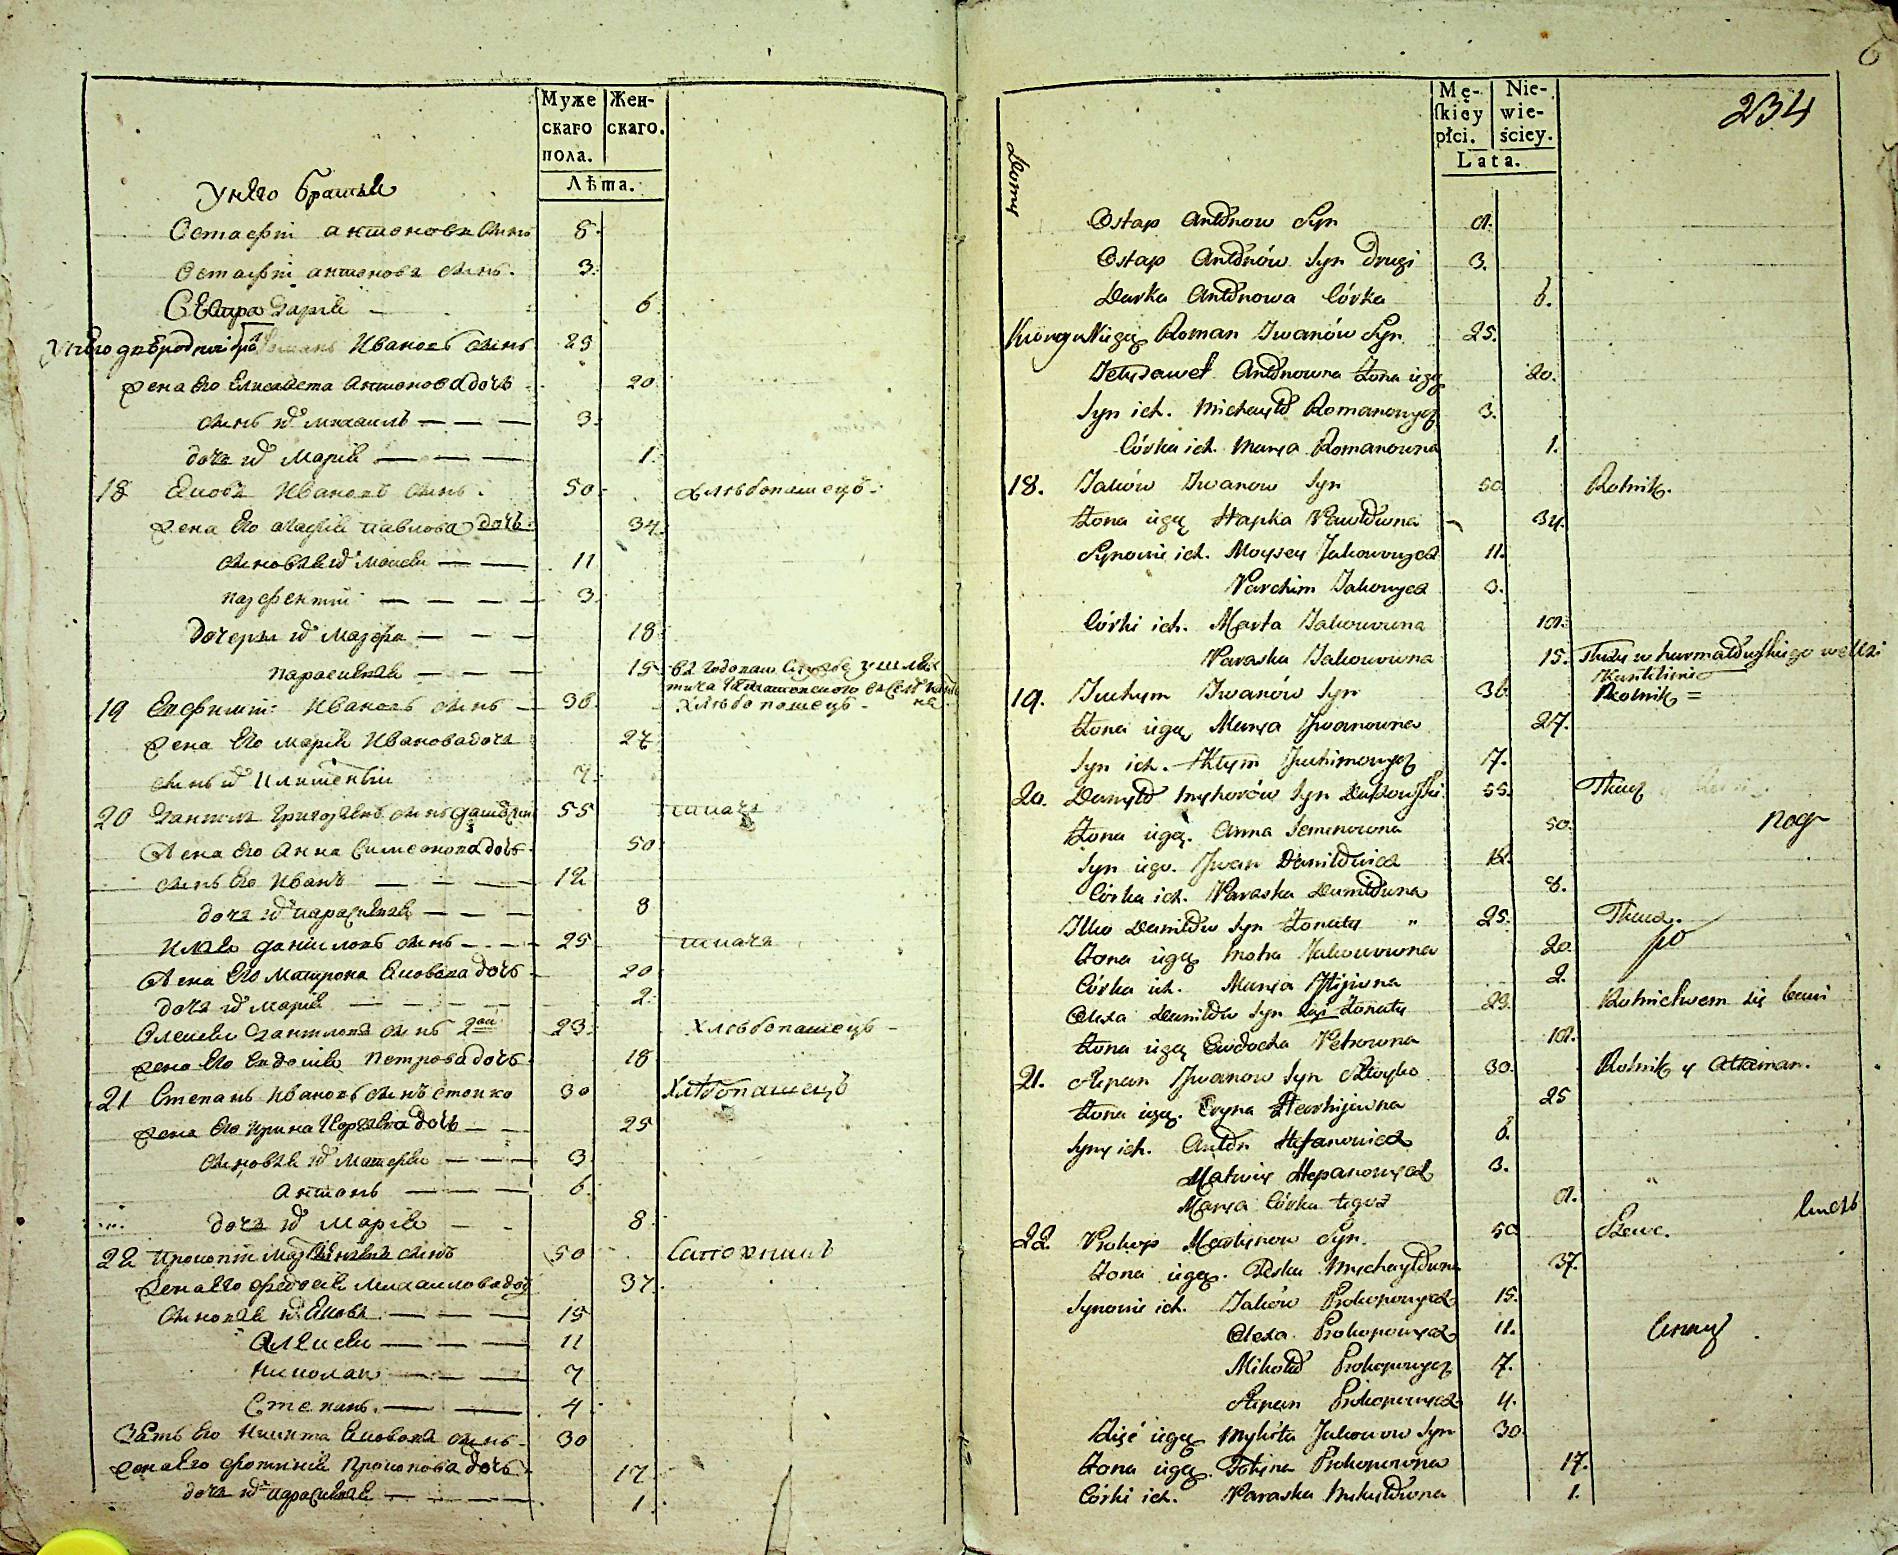 Муже
скаго
пола.
Жен-
скаго.
Лѣта.
У него братья
Остафій Антоновъ сынъ 8.
Остафій Антоновъ сынъ. 3.
Сестра Дарія — 6
Романъ Ивановъ сынъ 25
жена его Елисавета Антонова дочь 20
сынъ их Михаилъ — — — 3.
дочь их Марія — — — 1.
18 Яковъ Ивановъ сынъ. 50. хлѣбопашецъ.
жена его Агафія Павлова дочь 34.
сыновья их Моисей — — 11
Парфентій — — — — 3.
дочеры их Марфа — — — 18
Параскевія — — — 15.
19 Евфимій Ивановъ сынъ — 36. хлѣбопашецъ.
жена его Марія Иванова дочь 27
сынъ их Климентій 7.
20 Даніилъ Григорьевъ сынъ 55 ткачъ
жена его Анна Симеонова дочь 50
сынъ его Иванъ — — — 12
дочь их Параскевія — — — 8
Илья Даніиловъ сынъ — — 25 ткачъ
жена его Матрона Яковлева дочь 20
дочь их Марія — — — — — 2.
Алексей Даніиловъ сынъ 2ой 23. хлѣбопашецъ —
жена его Евдокія Петрова дочь 18
21 Степанъ Ивановъ сынъ Стойко 30 хлѣбопашецъ
жена его Ирина Георгіева дочь — — 25
сыновья их Матфей — — — 3
Антонъ — — — 6.
дочь их Марія — — 8.
22 Прокопій сынъ 50 сапожникъ
жена его Феодосія Михаилова дочь 37.
сыновья их Яковъ — — — 15
Алексей — — — 11
Николай — — — 7
Степанъ — — — 4
Зять его Никита Яковлевъ сынъ 30
жена его Фотинія Прокопова дочь 17
дочь их Параскевія — — — 1.
6
234
Mę-
skiey
płci.
Nie-
wie-
ściey.
Lata.
Domy
Ostap Antonow Syn
Ostap Antonów Syn drugi 3.
Darka Antonowa Córka 6.
Roman Iwanów Syn 25.
Antonowna żona iego 20.
Syn ich. Michayło Romanowycz 3.
Córka ich. Marya Romanowna 1.
18. Jaków Iwanow Syn 50 Rolnik.
żona iego Hapka Pawłowna 34.
Synowie ich. Moysey Jakowycz 11.
Parchim Jakowycz 3.
Córki ich. Marta Jakowowna
Paraska Jakowowna 15.
19. Juchym Iwanów Syn 36 Rolnik =
żona iego Marya Iwanowna 27.
Syn ich. Kłym Juchimowycz 7.
20. Danyło Syn 55. Tkacz
żona iego. Anna Semenowna 50.
Syn iego. Iwan Daniłowicz
Córka ich. Paraska Daniłowna 8.
Ilko Daniłow Syn żonaty " 25. Tkacz.
żona iego Motra Jakowowna 20.
Córka ich. Marya Ilijowna 2.
Olexa Daniłow Syn żonaty 23. Rolnictwem się bawi
żona iego Ewdocha Petrowna
21. Stepan Iwanow Syn Stoyko 30. Rolnik y Ataman.
żona iego. Eryna 25
Syny ich. Anton Stefanowicz 6.
Matwiy Stepanowycz 3.
Marya Córka tegoż
22. Prokop Syn. 50 Szewc.
żona iego. Michayłowna 37.
Synowie ich. Jaków Prokopowycz 15.
Olexa Prokopowycz 11.
Mikoło Prokopowycz 7.
Stepan Prokopowycz 4.
Zięć iego Mykita Jakowow Syn 30.
żona iego Fotyna Prokopowna 17.
Córki ich. Paraska 1.